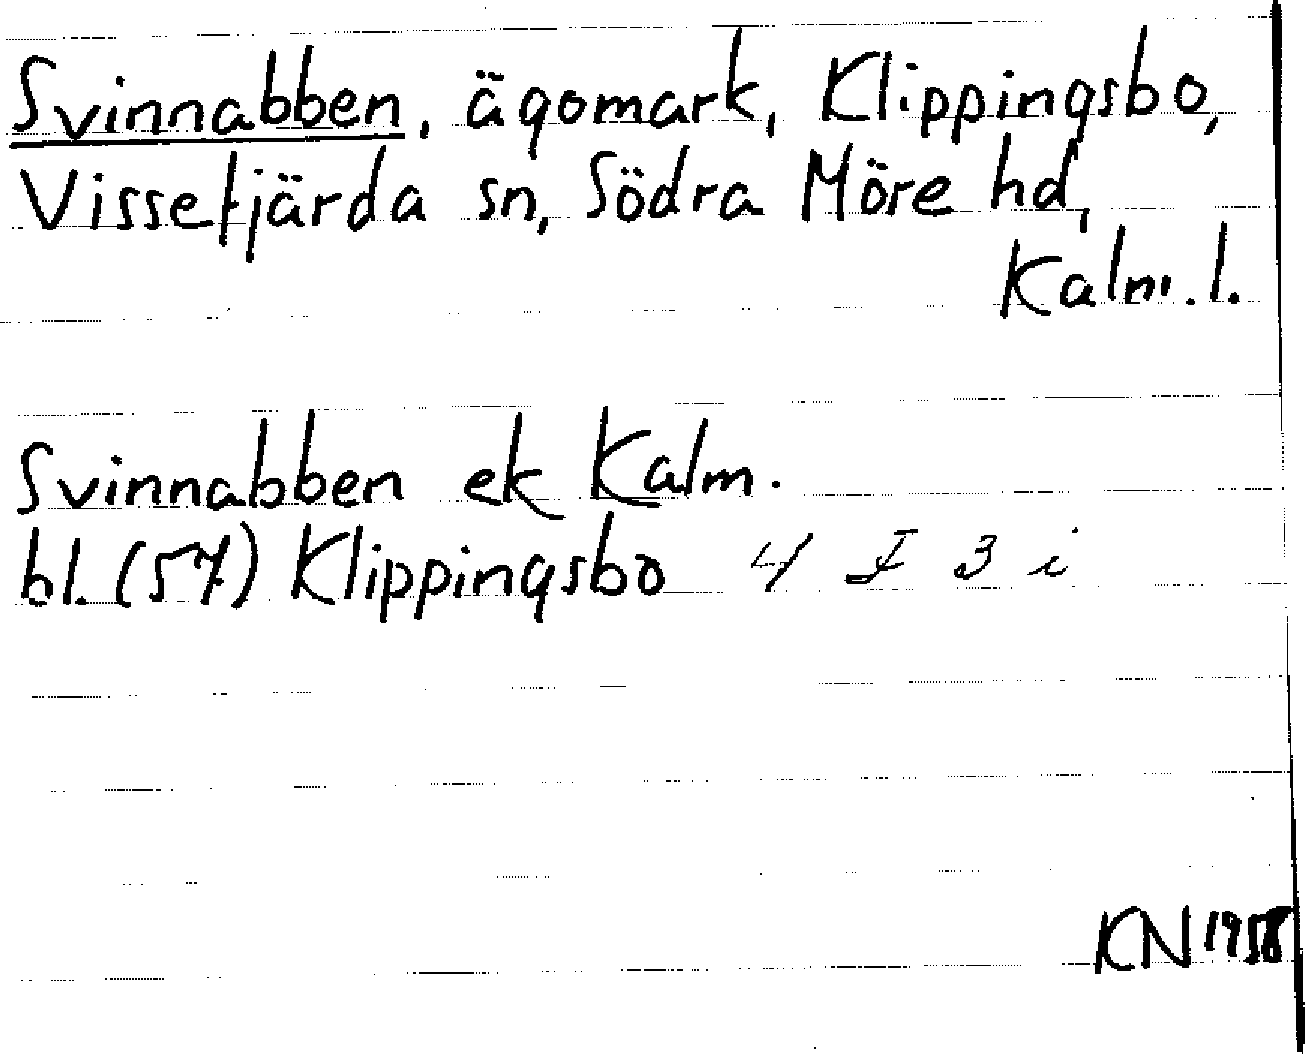 Svinnabben, ägomark, Klippingsbo,
Vissefjärda sn, Södra Möre hd,
Kalm. l.
Svinnabben ek Kalm.
bl. (57) Klippingsbo 4 F 3 i
KN 1958